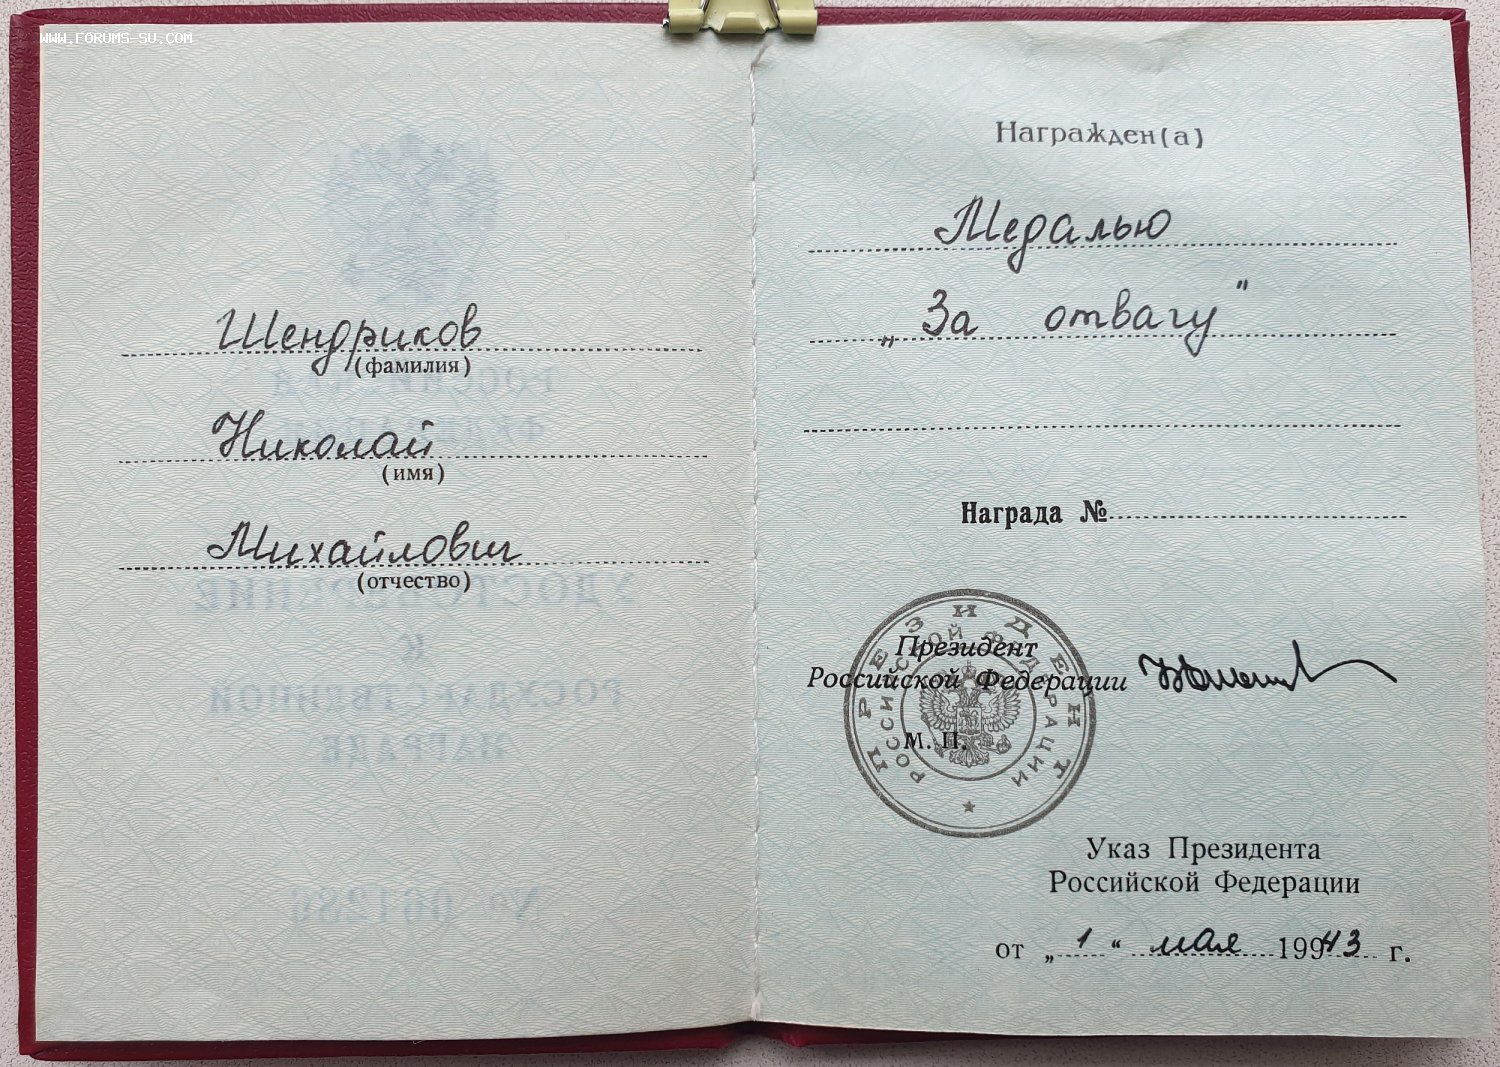 WWW.FORUMS-SU.COM
Шендриков
(фамилия)
Николай
(имя)
Михайлович
(отчество)
Награжден(а)
Медалью
„За отвагу"
Награда №
ПРЕЗИДЕНТ
РОССИЙСКОЙ ФЕДЕРАЦИИ
Президент
Российской Федерации
М. П.
Указ Президента
Российской Федерации
от „1“ мая 19943 г.